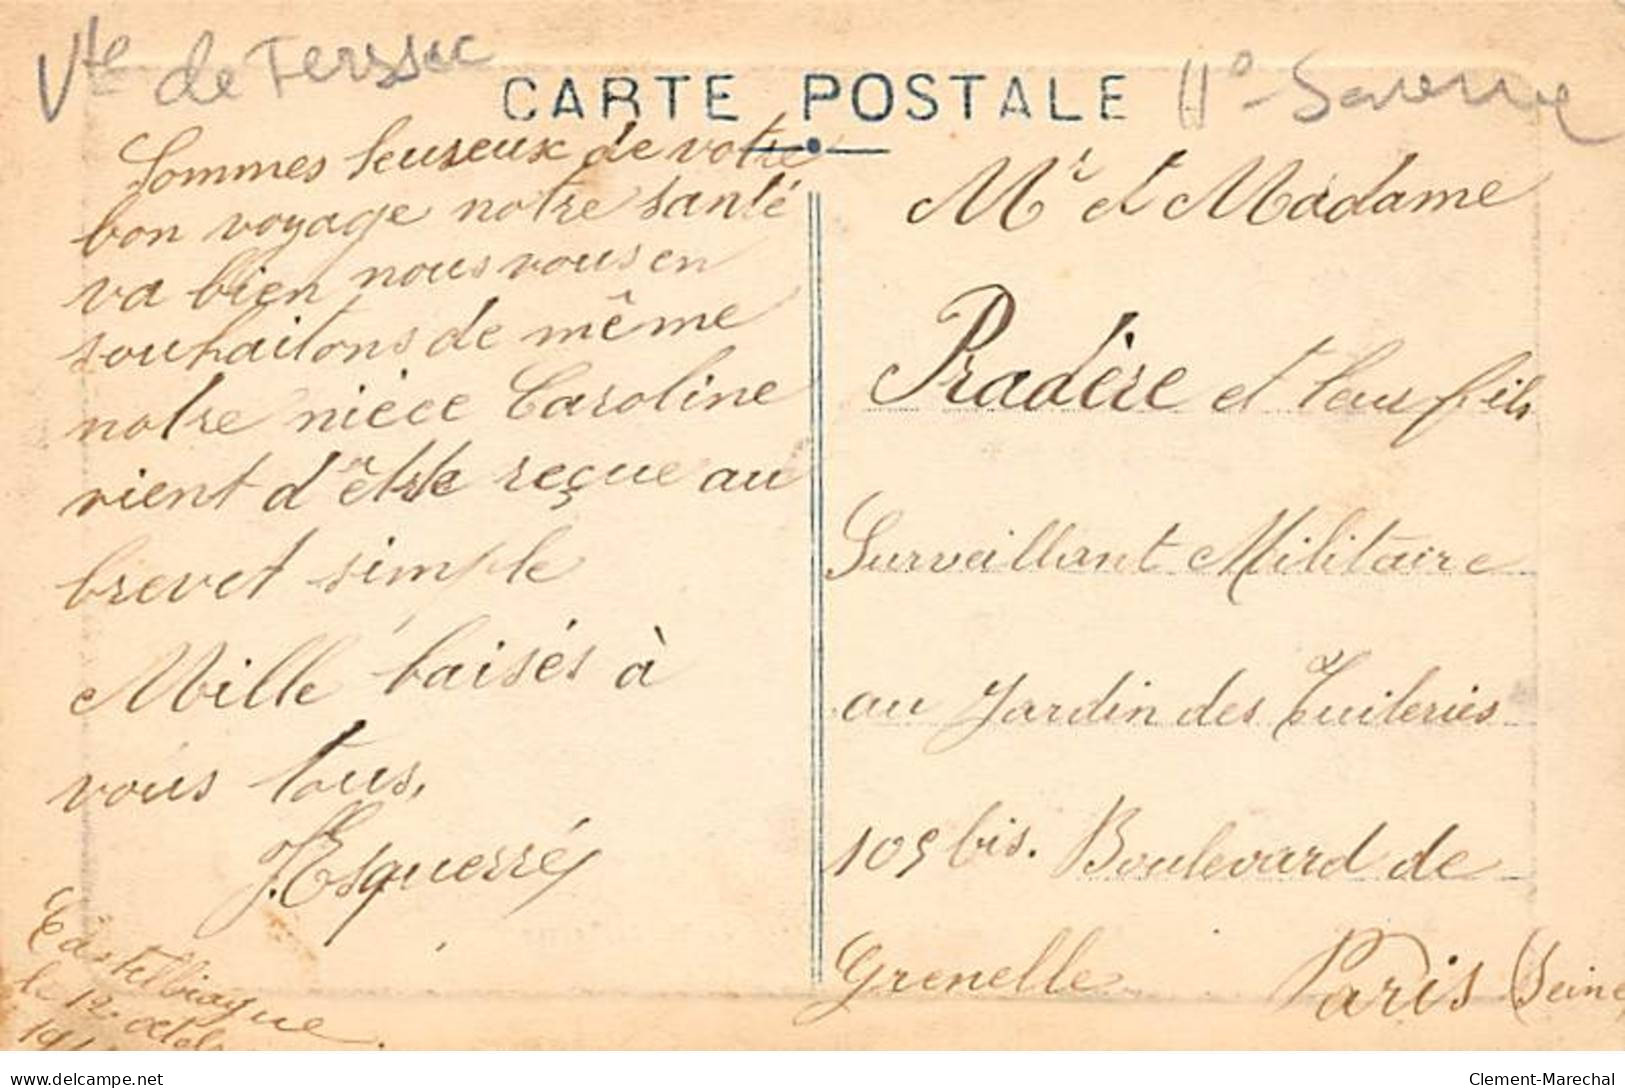 Vte de Terssac
CARTE POSTALE
Hte
Sommes heureux de votre
bon voyage notre santé
va bien nous vous en
souhaitons de même
notre nièce Caroline
vient d'être reçue au
brevet simple
Mille baisés à
vous tous,
J. Esquerré
Castelbiague
le 12 octob
191
Mr et Madame
Pradère et leur fils
Surveillant Militaire
au Jardin des Tuileries
109 bis. Boulevard de
Grenelle Paris (Seine
delcampe.net
Clement-Marechal